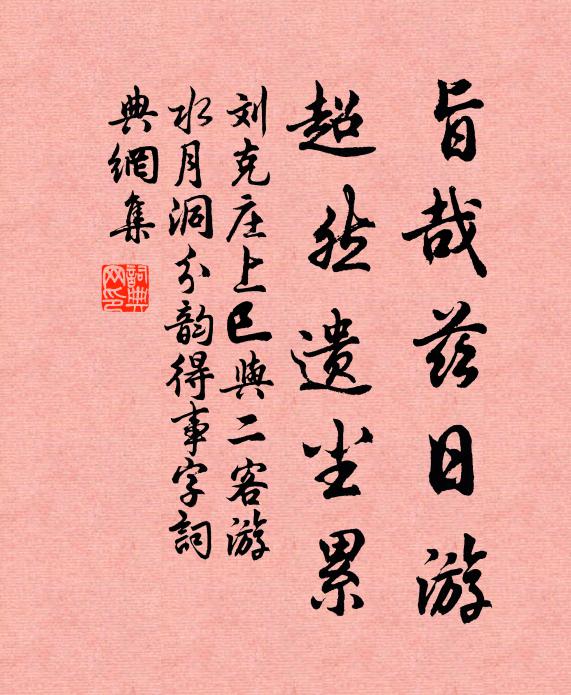 旨哉兹日游
超然遗尘累
刘克庄上巳与二客游
水月洞分韵得事字詞
典網集
詞典网印